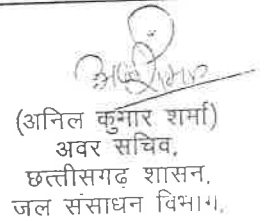 (अनिल कुमार शर्मा)
अवर सचिव,
छत्तीसगढ़ शासन,
जल संसाधन विभाग,